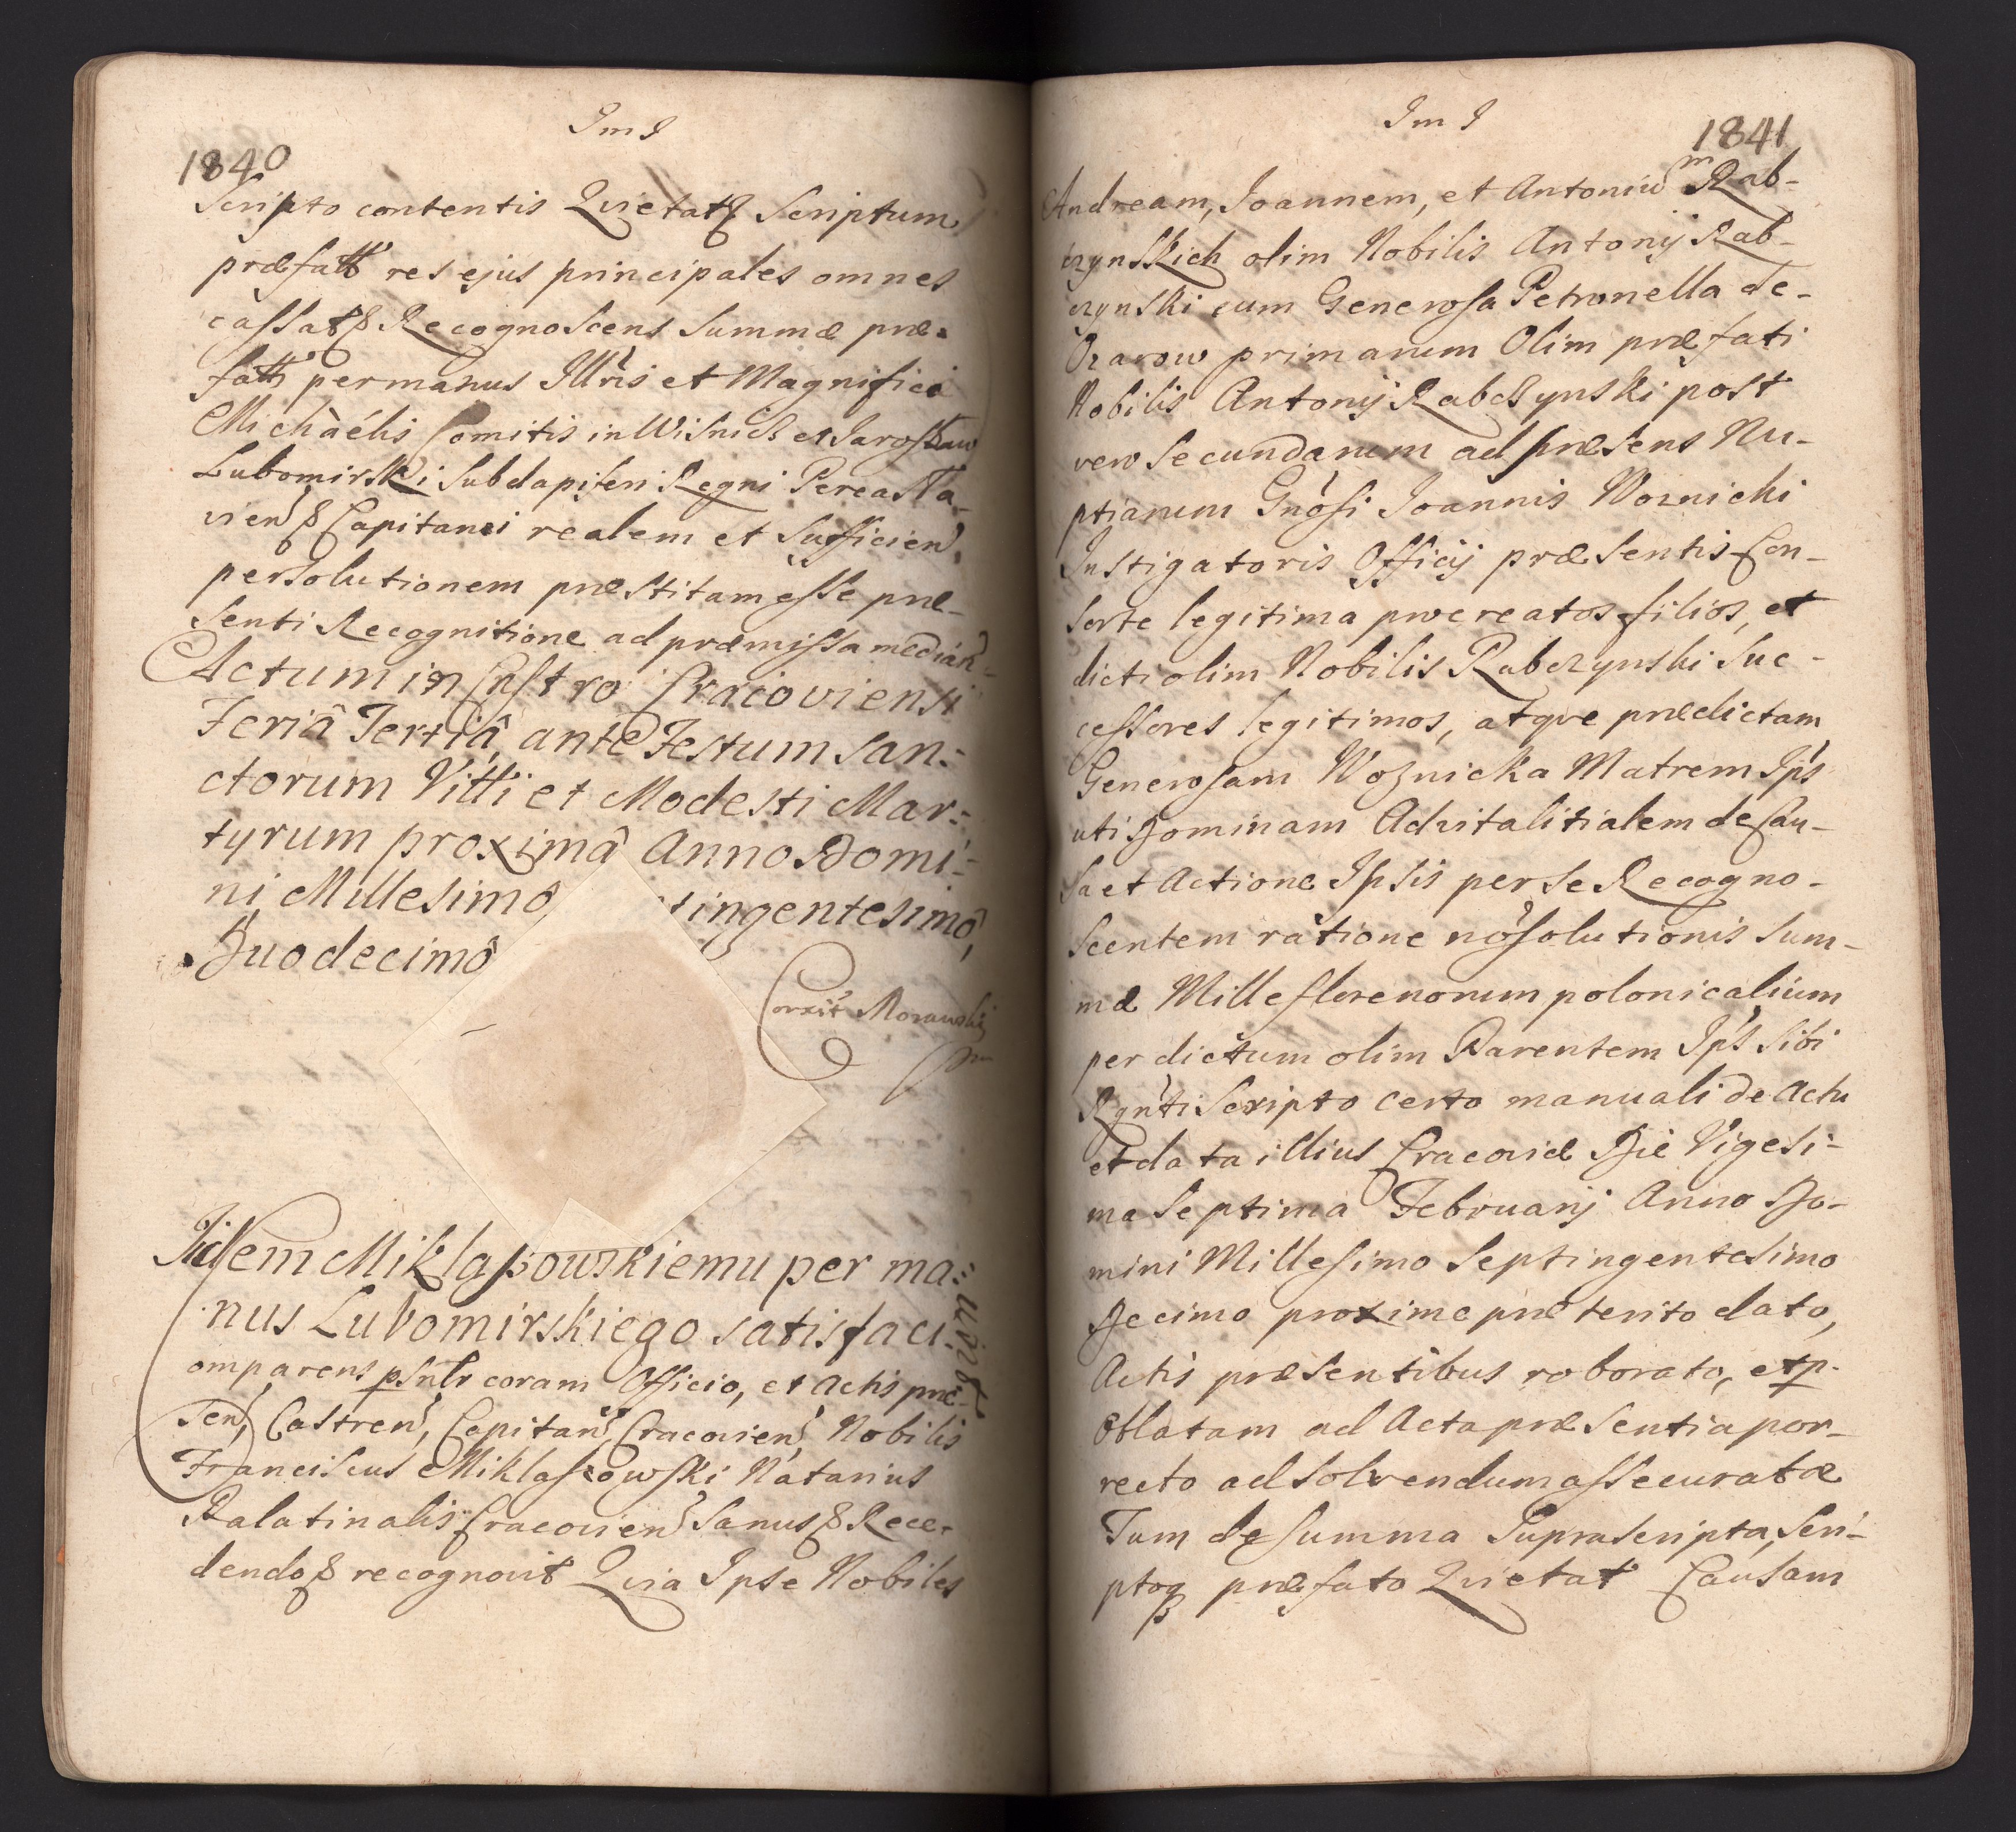 Im I
1840
Scripto contentis Qvietat& Scriptum
præfatt res ejus principales omnes
cassat& Recognoscens Summæ præ-
fatt per manus Illris et Magnifici
Michàélis Comitis in Wisnicz et Jarosław
Lubomirski Subdapiferi Regni Pereasla-
vien & Capitanei realem et Sufficien
persolutionem præstitam esse præ-
senti Recognitione ad præmissa median
Actum in Castro Cracoviensi
Feriâ Tertiâ, ante Festum San:
ctorum Viti et Modesti Mar:
tyrum proximâ Anno Domi:
ni Millesimô tingentesimô,
Duodecimô
Corxit Morawski
Idem Miklaszowskiemu per ma:
nus Lubomirskiego satisfaci:
omparens psnlr coram Officio, et Actis præ-
sen, Castren, Capitan, Cracovien, Nobilis
Franciscus Miklaszowski Notarius
Palatinalis Cracovien Sanus & Rece-
dendo & recognovit Qvia Ipse Nobiles
Im I
1841
Andream, Joannem, et Antoniu m Rab-
czynskich olim Nobilis Antonij Rab-
czynski cum Generosa Petronella de-
Ozarow primarum Olim præfati
Nobilis Antonij Rabczynski post
vero secundarum ad præsens Nu-
ptiarum Gnosi Joannis Woznicki
Instigatoris Officij præsentis Con-
sorte legitima procreatos filios, et
dicti olim Nobilis Rabczynski Suc-
cessores legitimos, atqve prædictam
Generosam Woznicka Matrem Ips
uti Dominam Advitalitialem de Cau-
sa et Actione Ipsis per se Recogno-
scentem ratione nosolutionis Sum-
mæ Mille florenorum polonicalium
per dictum olim Parentem Ips Sibi
Rgnti Scripto certo manuali de Actu
et data illius Cracoviæ Die Vigesi-
ma Septima Februarij Anno Do-
mini Millesimo Septingentesimo
Decimo proxime præterito dato,
Actis præsentibus roborato, et p.
Oblatam ad Acta præsentia por-
recto ad solvendum assecuratæ
Tum de summa Suprascripta, Scri-
ptoq præfato Qvietat Causam